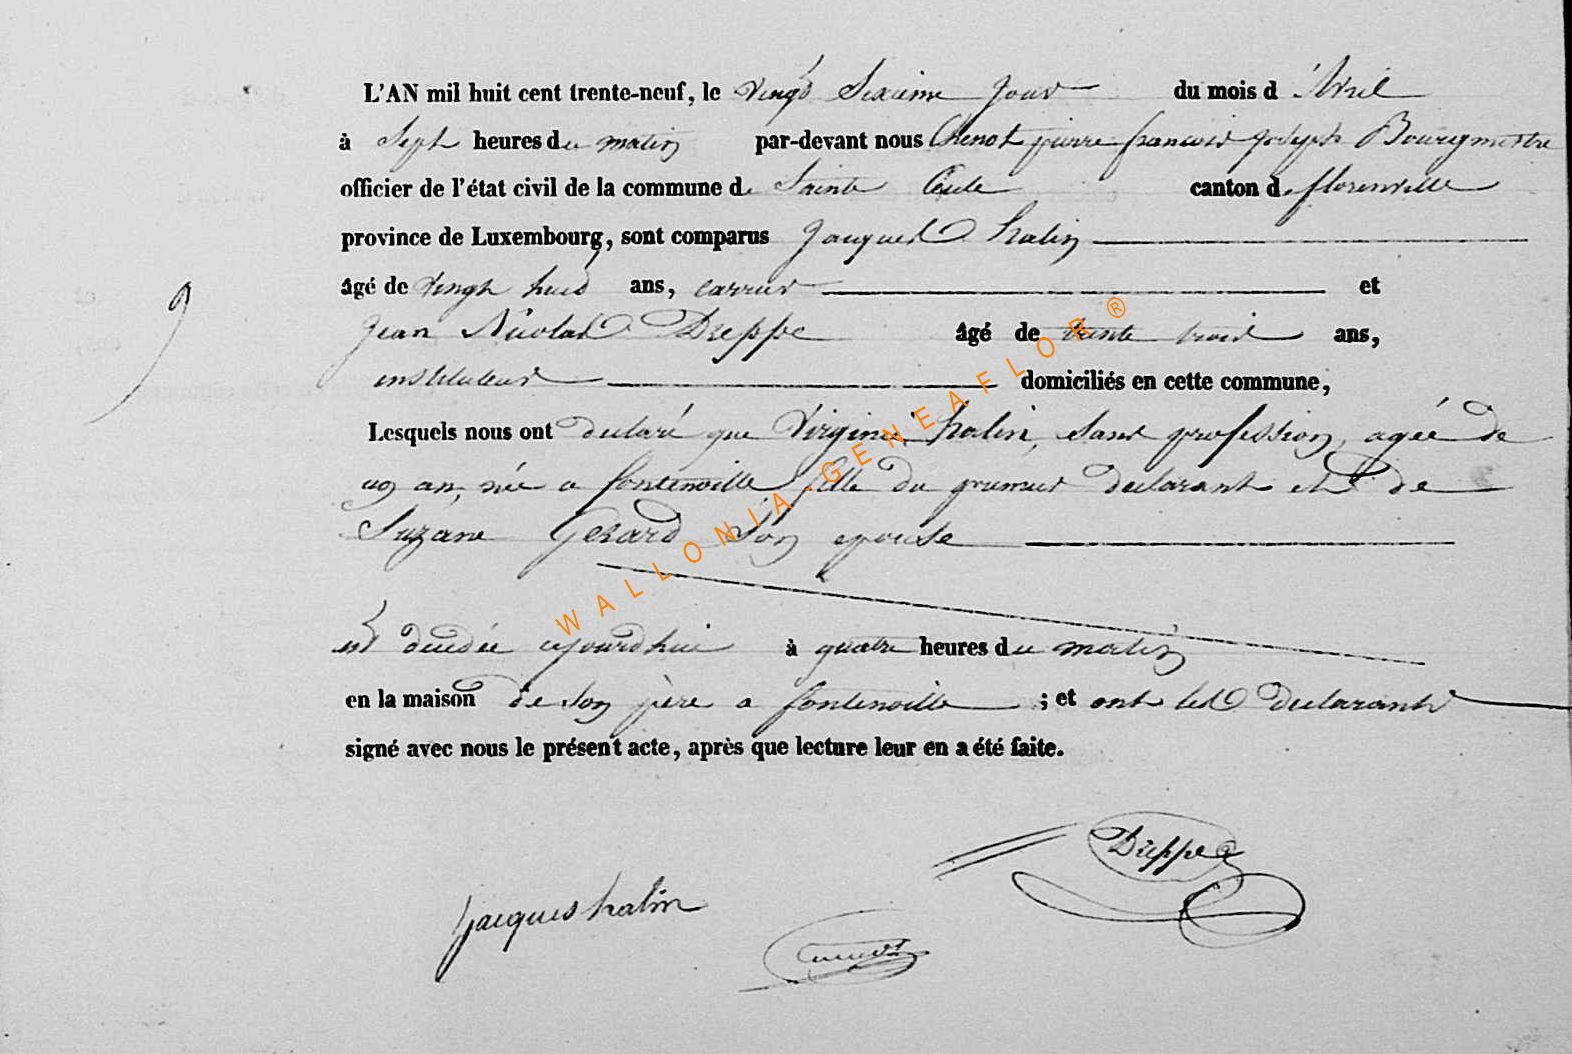 L'AN mil huit cent trente-neuf, le vingt Sixieme jour du mois d'Avril
à Sept heures du matin par-devant nous Chenot pierre francois joseph Bourgmestre
officier de l'état civil de la commune de Sainte Cecile canton de florenville
province de Luxembourg, sont comparus Jacques halin
âgé de vingt huit ans, carrier et
Jean Nicolas Dieppe âgé de trente trois ans,
instituteur domiciliés en cette commune,
Lesquels nous ont declaré que Virginie halin, sans profession, agée de
un an, née a fontenoille fille du premier declarant et de
Suzane Gerard Son epouse
est decedée ajourdhui à quatre heures du matin
en la maison de Son père a fontenoille ; et ont les declarants
signé avec nous le présent acte, après que lecture leur en a été faite.
9
Dieppe
jacques halin
WALLONIA-GENEAFLOR®